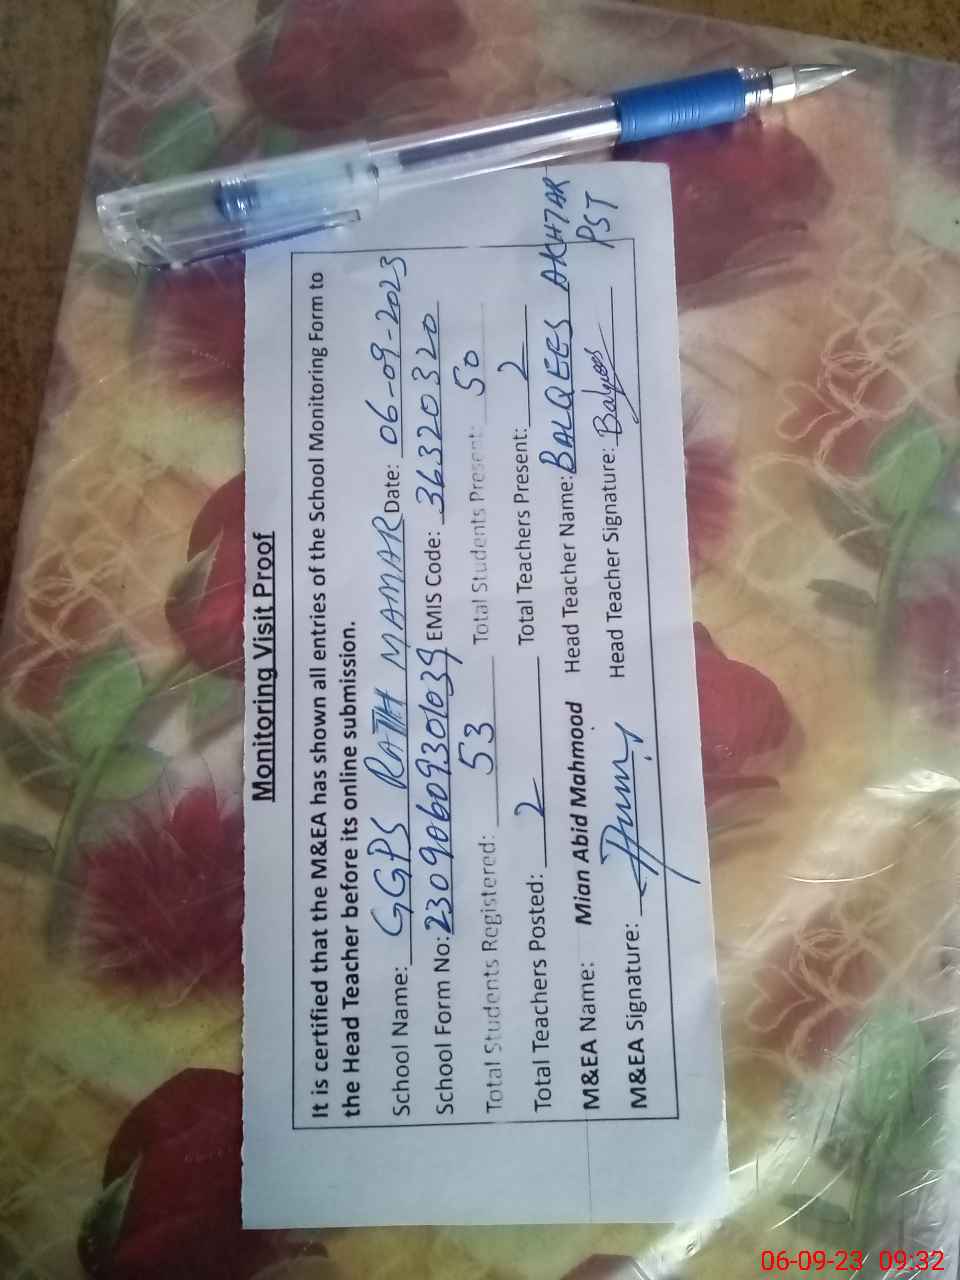 Monitoring Visit Proof
It is certified that the M&EA has shown all entries of the School Monitoring Form to
the Head Teacher before its online submission.
School Name: GGPS RATH MAMAR Date: 06-09-2023
School Form No: 23090609301039 EMIS Code: 36320320
Total Students Registered: 53 Total Students Present: 50
Total Teachers Posted: 2 Total Teachers Present: 2
M&EA Name: Mian Abid Mahmood Head Teacher Name: BALQEES AKHTAR
PST
M&EA Signature: Head Teacher Signature: Balqees
06-09-23 09:32